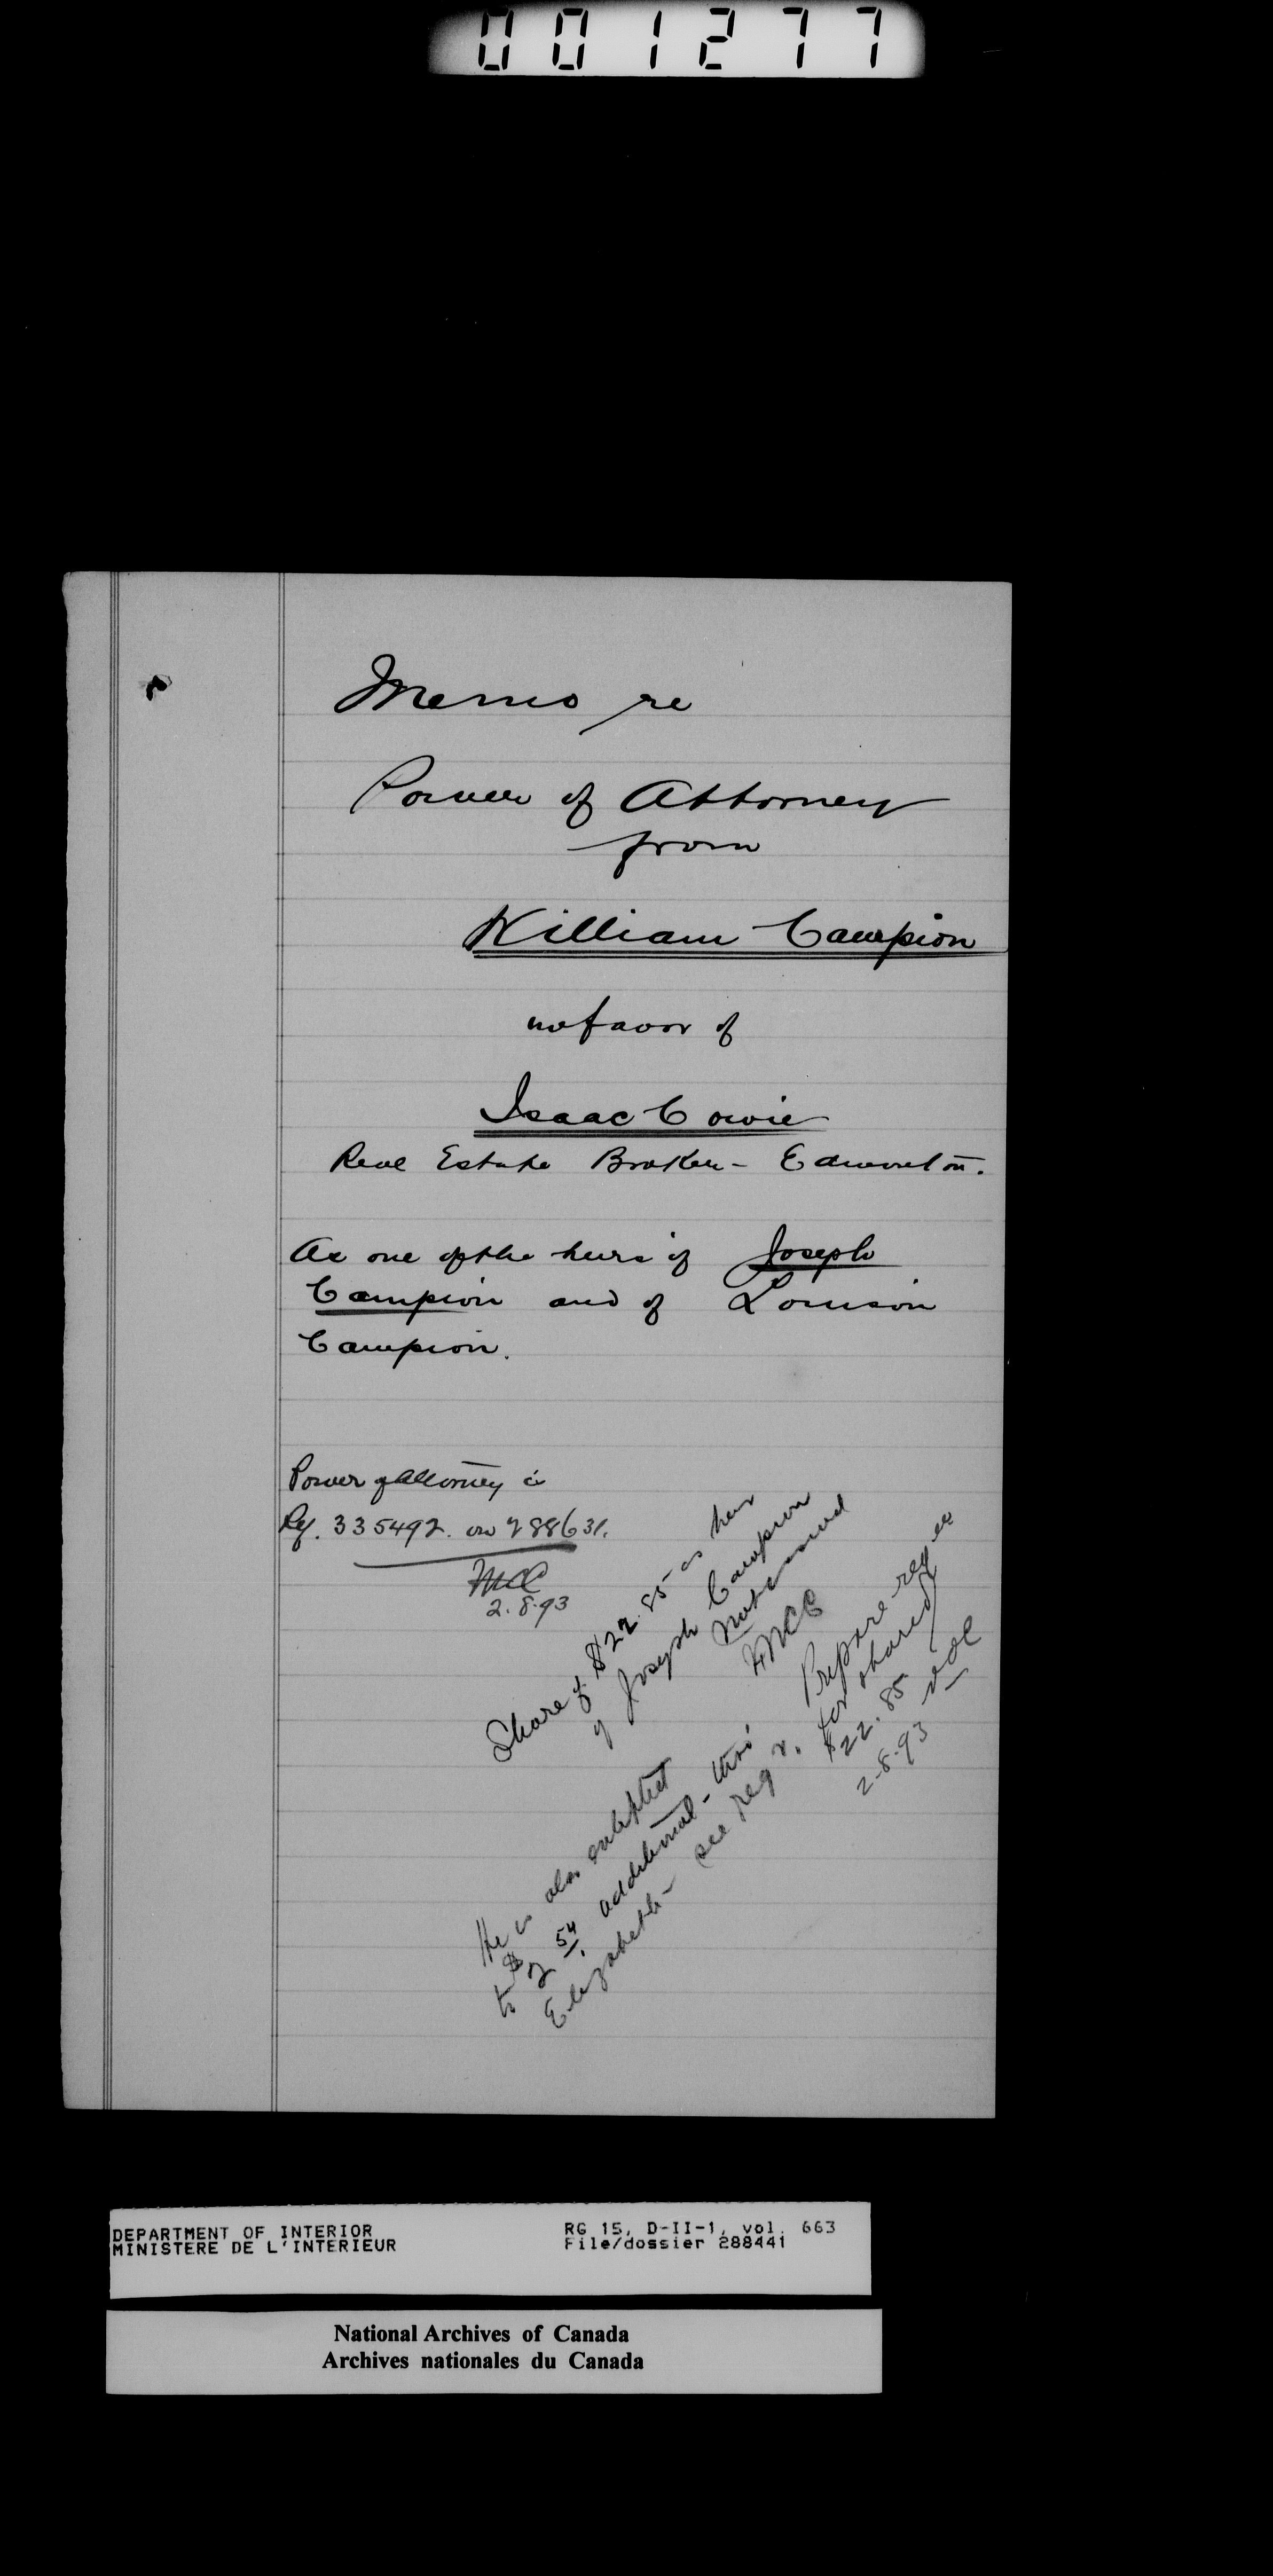 001277
Memo re
Power of Attorney
from
William Campion
in favor of
Isaac Cowie
Real Estate Broker - Edmonton.
As one of the heirs of Joseph
Campion and of Louison
Campion.
Power of Attorney is
Ref. 335492 on 288631.
2.8.93
Share of $22.85 as heir
of Joseph Campion
not issued
Prepare
for share
$22.85
2-8-93
He is also entitled
to $2.54 additional - thro'
Elizabeth - see
DEPARTMENT OF INTERIOR
MINISTERE DE L'INTERIEUR
RG 15, D-II-1, vol. 663
File/dossier 288441
National Archives of Canada
Archives nationales du Canada